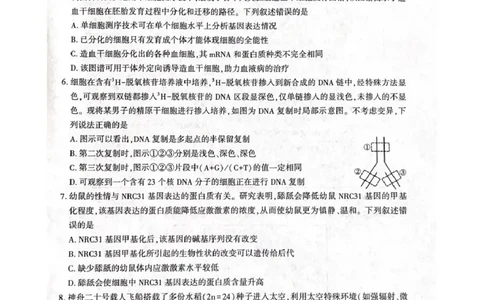 血干细胞在胚胎发育过程中分化和迁移的路径。下列叙述错误的是
A. 单细胞测序技术可在单个细胞水平上分析基因表达情况
B. 已分化的细胞只有发育成个体才能体现细胞的全能性
C. 造血干细胞分化出的各种血细胞,其 mRNA 和蛋白质种类不完全相同
D. 该图谱可用于体外定向诱导造血干细胞,助力血液病的治疗
6. 细胞在含有³H-脱氧核苷培养液中培养,³H-脱氧核苷掺入到新合成的 DNA 链中,经特殊方法显
色,可观察到双链都掺入³H-脱氧核苷的 DNA 区段显深色,仅单链掺入的显浅色,未掺入的不显
色。现将某男子的精原干细胞进行掺入培养,如图为 DNA 复制时局部示意图。不考虑变异,下
列说法正确的是
A. 图示可以看出,DNA 复制是多起点的半保留复制
B. 第二次复制时,图示①②③分别是浅色、深色、深色
C. 第三次复制时,图示①②③片段中(A+G)/(C+T)的值一定相同
D. 可观察到一个含有 23 个核 DNA 分子的细胞正在进行 DNA 复制
①
②
③
7. 幼鼠的性情与 NRC31 基因表达的蛋白质有关。研究表明,舔舐会降低幼鼠 NRC31 基因的甲基
化程度,该基因表达的蛋白质能降低应激激素的浓度,从而使幼鼠更为镇静、温和。下列叙述错
误的是
A. NRC31 基因甲基化后,该基因的碱基序列没有改变
B. NRC31 基因甲基化所引起的生物性状的改变可以遗传给后代
C. 缺少舔舐的幼鼠体内应激激素水平较低
D. 舔舐会使细胞中 NRC31 基因表达的蛋白质含量升高
8. 神舟二十号载人飞船搭载了多份水稻(2n=24)种子进入太空,利用太空特殊环境(如强辐射、微